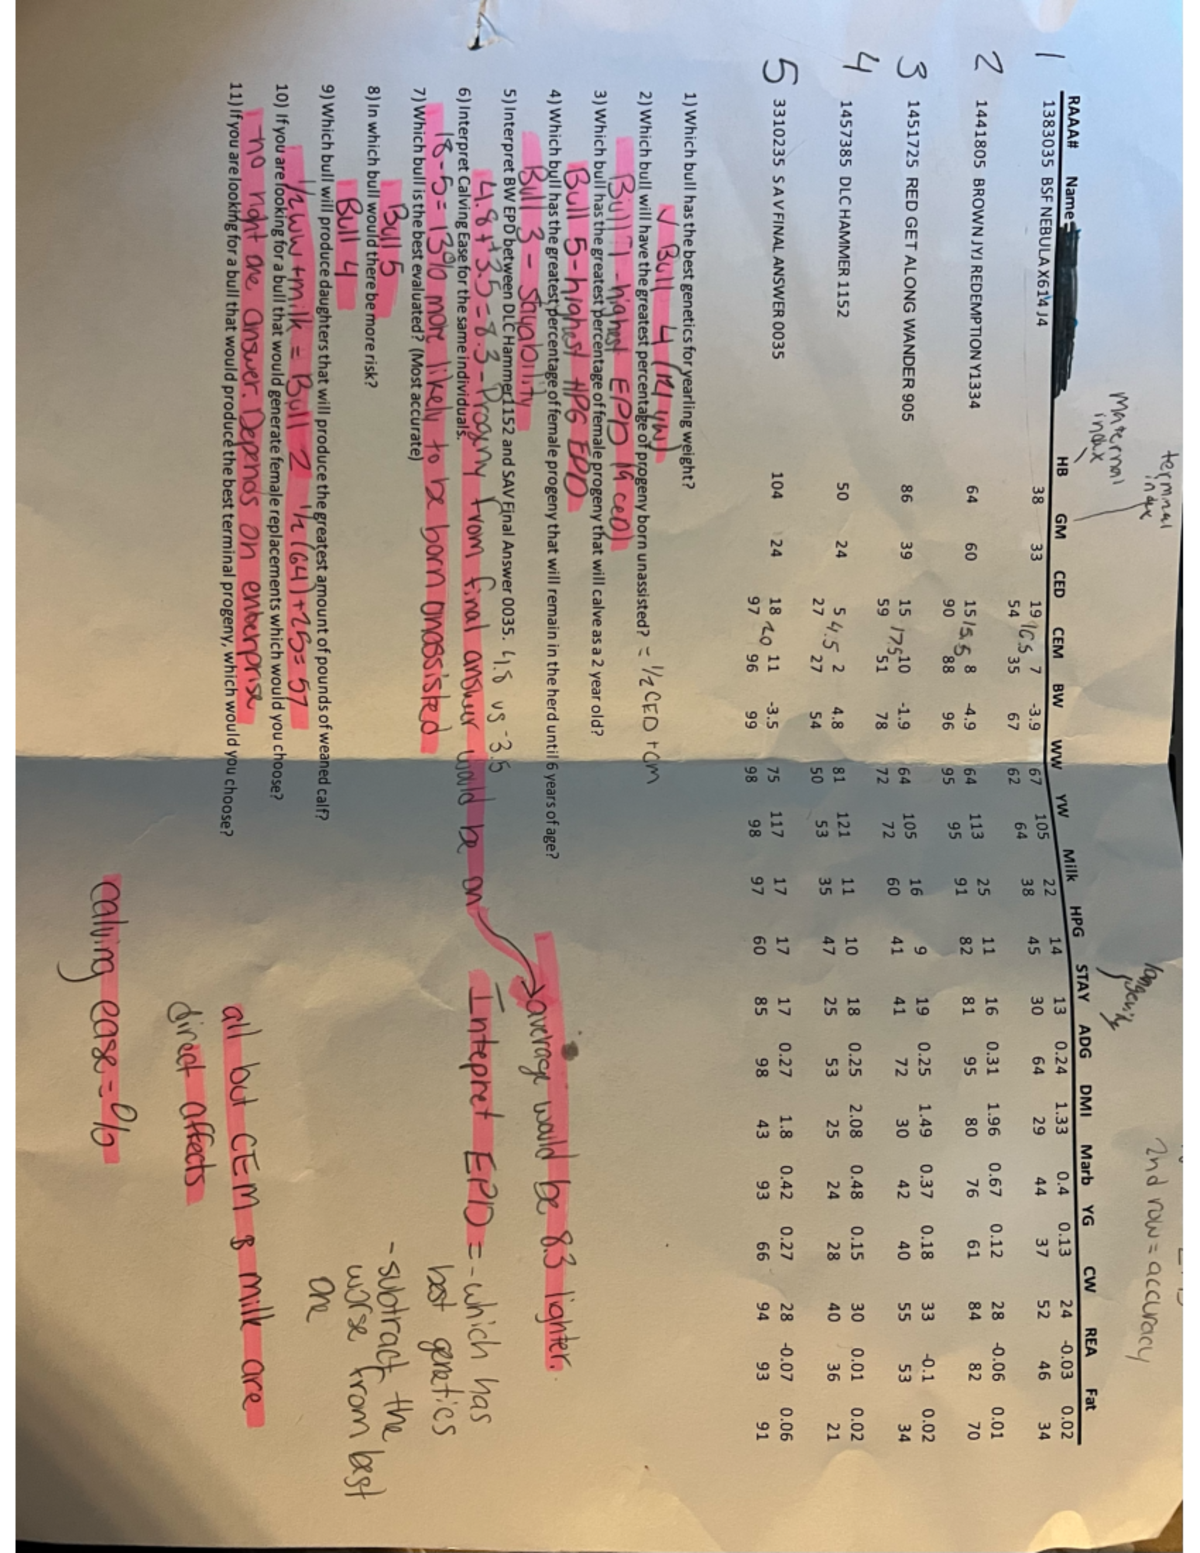 terminal
index
maternal
index
longevity
2nd row = accuracy
RAAA# Name HB GM CED CEM BW WW YW Milk HPG STAY ADG DMI Marb YG CW REA Fat
1 1383035 BSF NEBULA X614 J4 38 33 19 16.5 7 -3.9 67 105 22 14 13 0.24 1.33 0.4 0.13 24 -0.03 0.02
54 35 67 62 64 38 45 30 64 29 44 37 52 46 34
2 1441805 BROWN JYJ REDEMPTION Y1334 64 60 15 15.5 8 -4.9 64 113 25 11 16 0.31 1.96 0.67 0.12 28 -0.06 0.01
90 88 96 95 95 91 82 81 95 80 76 61 84 82 70
3 1451725 RED GET ALONG WANDER 905 86 39 15 17.5 10 -1.9 64 105 16 9 19 0.25 1.49 0.37 0.18 33 -0.1 0.02
59 51 78 72 72 60 41 41 72 30 42 40 55 53 34
4 1457385 DLC HAMMER 1152 50 24 5 4.5 2 4.8 81 121 11 10 18 0.25 2.08 0.48 0.15 30 0.01 0.02
27 27 54 50 53 35 47 25 53 25 24 28 40 36 21
5 3310235 S A V FINAL ANSWER 0035 104 24 18 20 11 -3.5 75 117 17 17 17 0.27 1.8 0.42 0.27 28 -0.07 0.06
97 96 99 98 98 97 60 85 98 43 93 66 94 93 91
1) Which bull has the best genetics for yearling weight?
Bull 4 (121 yw)
2) Which bull will have the greatest percentage of progeny born unassisted? = 1/2 CED + cm
Bull 1 - highest EPD 19 ced)
3) Which bull has the greatest percentage of female progeny that will calve as a 2 year old?
Bull 5 - highest HPG EPD
4) Which bull has the greatest percentage of female progeny that will remain in the herd until 6 years of age?
Bull 3 - Stayability
5) Interpret BW EPD between DLC Hammer1152 and SAV Final Answer 0035. 4.8 vs -3.5
4.8 + 3.5 = 8.3 - Progany from final answer would be on
average would be 8.3 lighter.
6) Interpret Calving Ease for the same individuals.
18 - 5 = 13% more likely to be born onassisted
7) Which bull is the best evaluated? (Most accurate)
Bull 5
8) In which bull would there be more risk?
Bull 4
9) Which bull will produce daughters that will produce the greatest amount of pounds of weaned calf?
1/2 WW + milk = Bull 2 1/2 (64) + 25 = 57
10) If you are looking for a bull that would generate female replacements which would you choose?
- no right are answer. Depends on enterprise
11) If you are looking for a bull that would produce the best terminal progeny, which would you choose?
Intepret EPD = - which has
best genetics
- subtract the
worse from best
one
all but CEM & milk are
direct affects
calving ease = %